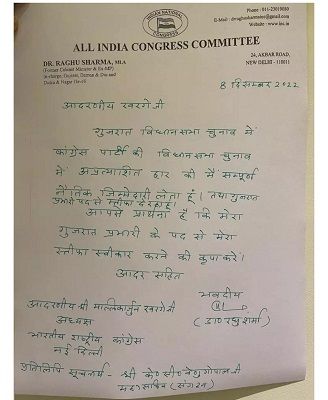 INDIAN NATIONAL
CONGRESS
Phone : 011-23019080
E-mail : drraghusharmainc@gmail.com
Website : www.inc.in
ALL INDIA CONGRESS COMMITTEE
DR. RAGHU SHARMA, MLA
(Former Cabinet Minister & Ex-MP)
In-charge, Gujarat, Daman & Diu and
Dadra & Nagar Haveli
24, AKBAR ROAD,
NEW DELHI - 110011
8 दिसम्बर 2022
आदरणीय खरगे जी
गुजरात विधानसभा चुनाव में
कांग्रेस पार्टी की विधानसभा चुनाव
में अप्रत्याशित हार की मैं सम्पूर्ण
नैतिक जिम्मेदारी लेता हूँ। तथा गुजरात
प्रभारी पद से इस्तीफा दे रहा हूँ।
आपसे प्रार्थना है कि मेरा
गुजरात प्रभारी के पद से मेरा
इस्तीफा स्वीकार करने की कृपा करें।
आदर सहित
भवदीय
(डा० रघु शर्मा)
आदरणीय श्री मल्लिकार्जुन खरगे जी
अध्यक्ष
भारतीय राष्ट्रीय कांग्रेस
नई दिल्ली
प्रतिलिपि सूचनार्थ - श्री के० सी० वेणुगोपाल जी
महासचिव (संगठन)